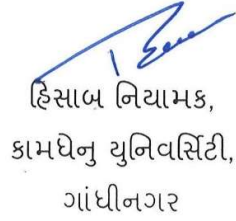 હિસાબ નિયામક,
કામધેનુ યુનિવર્સિટી,
ગાંધીનગર